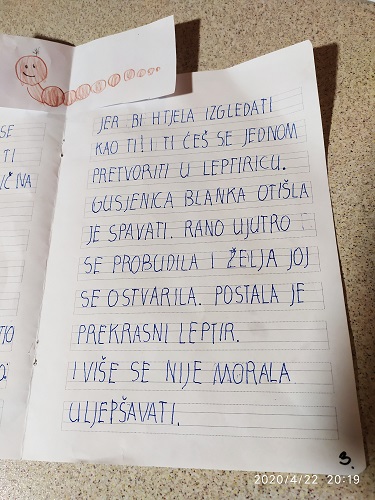 SE
TI
JER BI HTJELA IZGLEDATI
KAO TI I TI ĆEŠ SE JEDNOM
PRETVORITI U LEPTIRICU.
GUSJENICA BLANKA OTIŠLA
JE SPAVATI. RANO UJUTRO
SE PROBUDILA I ŽELJA JOJ
SE OSTVARILA. POSTALA JE
PREKRASNI LEPTIR.
I VIŠE SE NIJE MORALA
ULJEPŠAVATI.
3.
2020/4/22 20:19